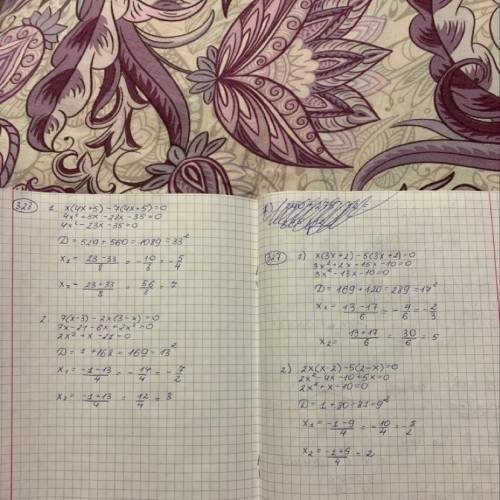 328
1. x(4x+5)-7(4x+5)=0
4x²+5x-28x-35=0
4x²-23x-35=0
D=529+560=1089=33²
x₁= (23-33)/8 = -10/8 = -5/4
x₂= (23+33)/8 = 56/8 = 7
2. 7(x-3)-2x(3-x)=0
7x-21-6x+2x²=0
2x²+x-21=0
D=1+168=169=13²
x₁= (-1-13)/4 = -14/4 = -7/2
x₂= (-1+13)/4 = 12/4 = 3
327
1) x(3x+2)-5(3x+2)=0
3x²+2x-15x-10=0
3x²-13x-10=0
D=169+120=289=17²
x₁= (13-17)/6 = -4/6 = -2/3
x₂= (13+17)/6 = 30/6 = 5
2) 2x(x-2)-5(2-x)=0
2x²-4x-10+5x=0
2x²+x-10=0
D=1+80=81=9²
x₁= (-1-9)/4 = -10/4 = -5/2
x₂= (-1+9)/4 = 2